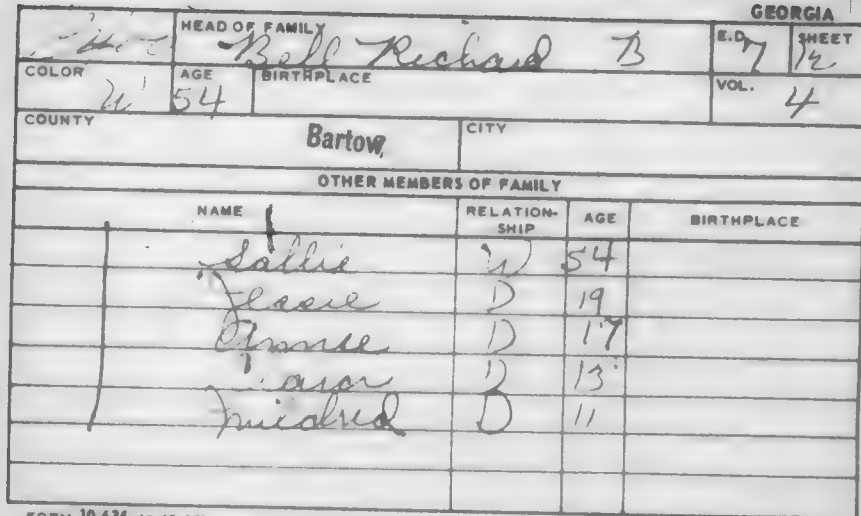 GEORGIA
HEAD OF FAMILY Bell Richard B E.D. 7 SHEET 12
COLOR W AGE 54 BIRTHPLACE VOL. 4
COUNTY Bartow, CITY
OTHER MEMBERS OF FAMILY
NAME RELATION-SHIP AGE BIRTHPLACE
Sallie W 54
Jessie D 19
D 17
D 13
Mildred D 11